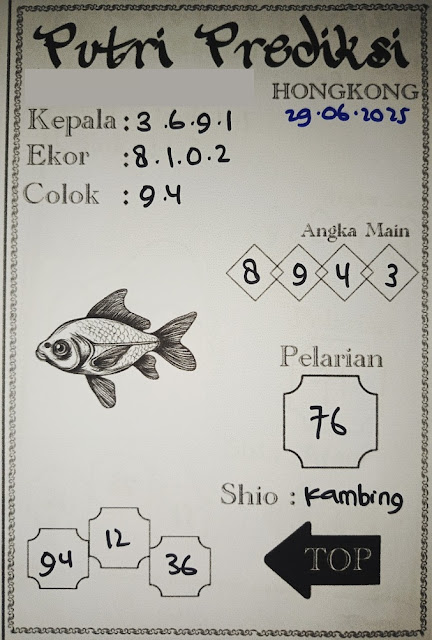 Putri Prediksi
HONGKONG
29.06.2025
Kepala : 3 .6.9.1
Ekor : 8.1.0.2
Colok : 9.4
Angka Main
8 9 4 3
Pelarian
76
Shio : Kambing
94 12 36
TOP